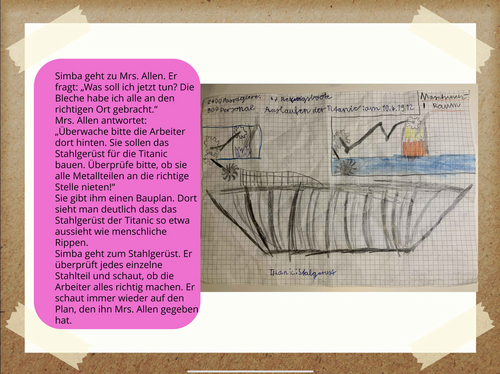 Simba geht zu Mrs. Allen. Er
fragt: „Was soll ich jetzt tun? Die
Bleche habe ich alle an den
richtigen Ort gebracht.“
Mrs. Allen antwortet:
„Überwache bitte die Arbeiter
dort hinten. Sie sollen das
Stahlgerüst für die Titanic
bauen. Überprüfe bitte, ob sie
alle Metallteilen an die richtige
Stelle nieten!“
Sie gibt ihm einen Bauplan. Dort
sieht man deutlich dass das
Stahlgerüst der Titanic so etwa
aussieht wie menschliche
Rippen.
Simba geht zum Stahlgerüst. Er
überprüft jedes einzelne
Stahlteil und schaut, ob die
Arbeiter alles richtig machen. Er
schaut immer wieder auf den
Plan, den ihn Mrs. Allen gegeben
hat.
Personal
Auslaufen der Titanic am 10.4.1912
Raum